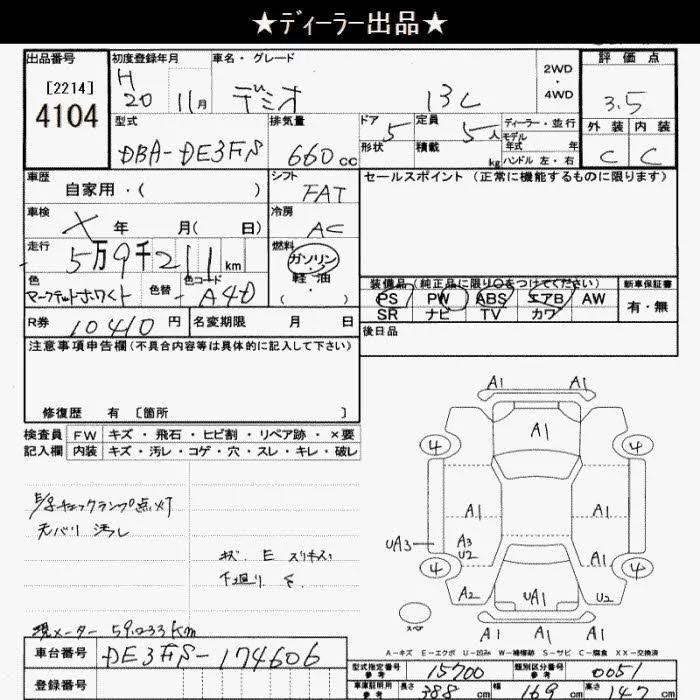 ★ディーラー出品★
出品番号
[2214]
4104
初度登録年月
H
20 11月
車名・グレード
デミオ 13C
2WD
・
4WD
評価点
3.5
外装 内装
C C
型式
DBA-DE3FS
排気量
660cc
ドア 5
形状
定員 5人
積載 kg
ディーラー・並行
モデル年式 年
ハンドル 左・右
車歴
自家用・( )
シフト
FAT
セールスポイント (正常に機能するものに限ります)
車検
年 月( 日)
冷房
AC
走行
5万9千211km
燃料
ガソリン
軽油
・
( )
色
色替
色コード
A4D
装備品(純正品に限り○をつけてください)
PS PW ABS エアB AW
SR ナビ TV カワ
新車保証書
有・無
R券
10410円
名変期限 月 日
後日品
注意事項申告欄(不具合内容等は具体的に記入して下さい)
修復歴 有 [箇所 ]
検査員
記入欄
FW キズ・飛石・ヒビ割・リペア跡・×要
内装 キズ・汚レ・コゲ・穴・スレ・キレ・破レ
E/gチェックランプ点灯
天バリ 汚レ
キズ E スリキズ
下廻り S
現メーター 59,233km
A1 A1
A1
4 4
A1 A1
UA3
A3
U2
A1
4 4
A2 UA1 U2
A1 A1 A1
スペア
A-キズ E-エクボ U-凹み W-補修跡 S-サビ C-腐食 XX-交換済
車台番号
DE3FS-174606
登録番号
型式指定番号
参考
15700
類別区分番号
参考
0051
車庫証明用
参考
長さ 388 cm
幅 169 cm
高さ 147 cm